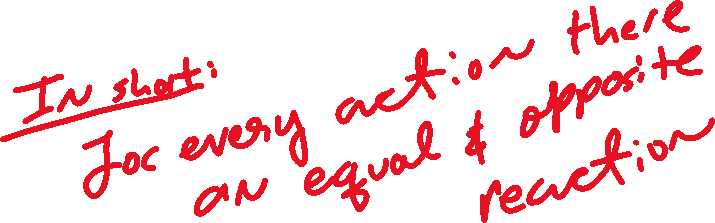 In short:
For every action there
an equal & opposite
reaction